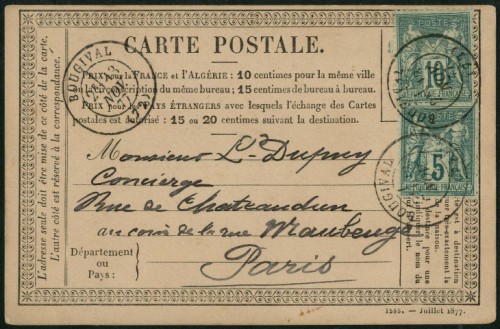 CARTE POSTALE.
PRIX pour la FRANCE et l'ALGÉRIE: 10 centimes pour la même ville
circonscription du même bureau; 15 centimes de bureau à bureau.
PRIX pour les PAYS ÉTRANGERS avec lesquels l'échange des Cartes
postales est autorisé: 15 ou 20 centimes suivant la destination.
BOUGIVAL
Monsieur L. Dupuy
Concierge
Rue de Chateaudun
au coin de la rue Maubeuge
Département
ou
Pays:
Paris
L'adresse seule doit être mise de ce côté de la carte.
L'autre côté est réservé à la correspondance.
POSTE
10
RÉPUBLIQUE FRANÇAISE
5
RÉPUBLIQUE FRANÇAISE
BOUGIVAL
BOUGIVAL
1595. — Juillet 1877.